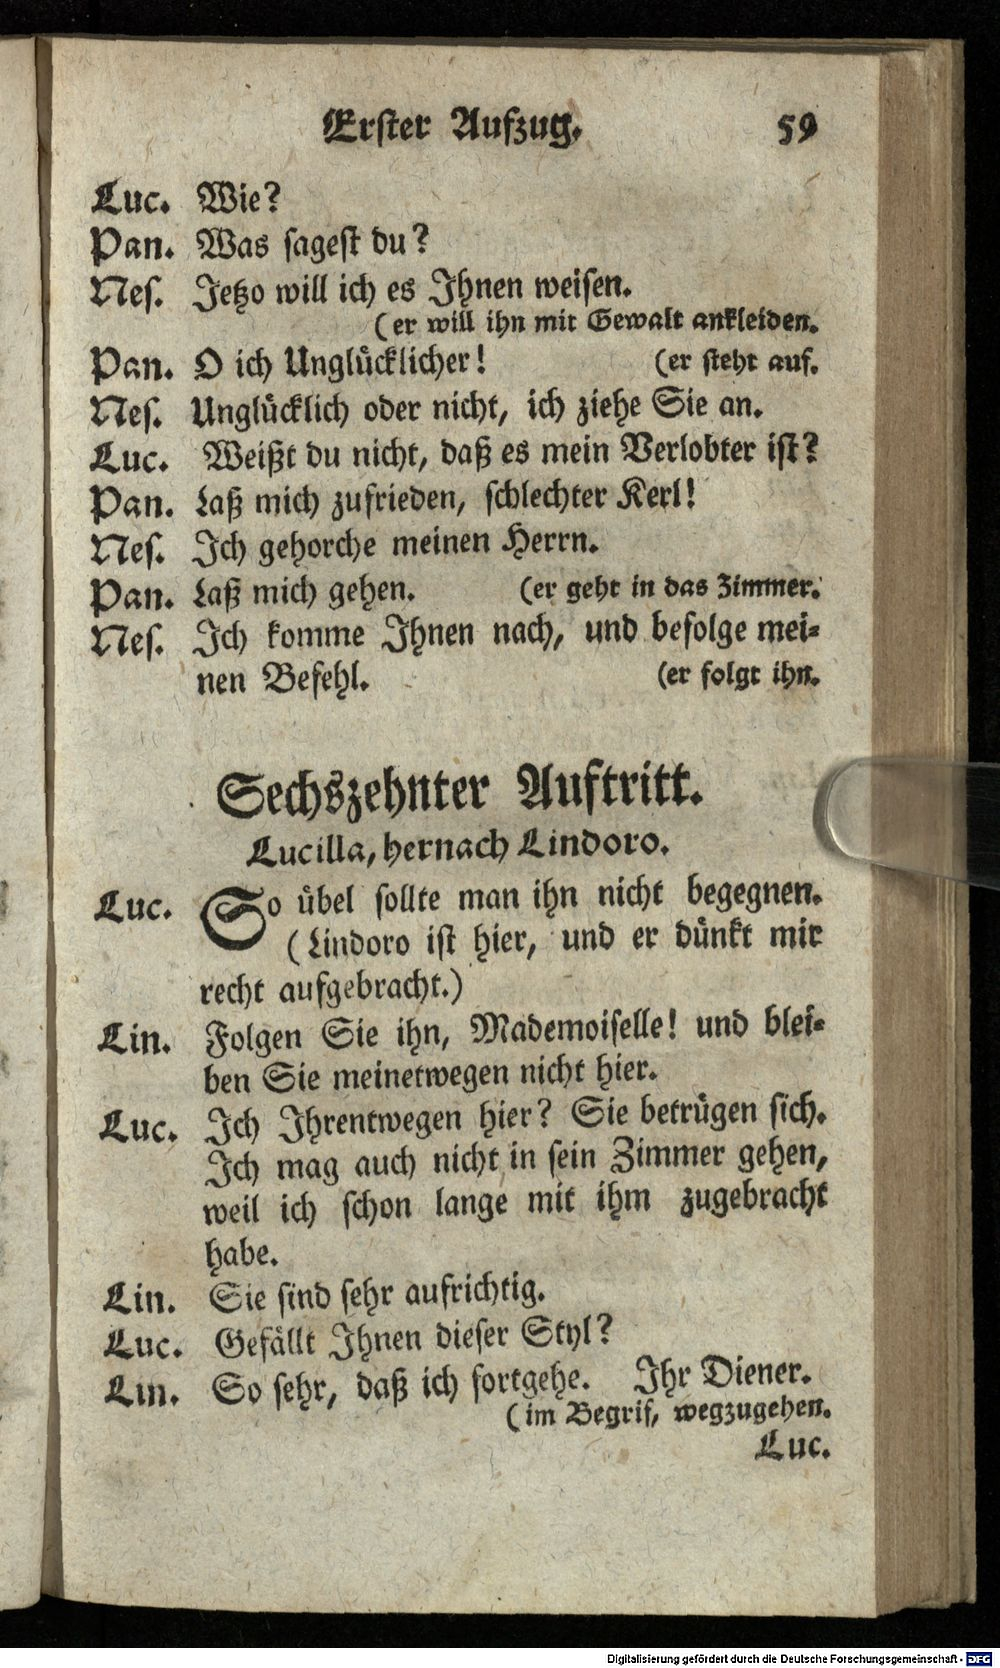 Erster Aufzug. 59
Luc. Wie?
Pan. Was sagest du?
Nes. Jetzo will ich es Ihnen weisen.
(er will ihn mit Gewalt ankleiden.
Pan. O ich Unglücklicher! (er steht auf.
Nes. Unglücklich oder nicht, ich ziehe Sie an.
Luc. Weißt du nicht, daß es mein Verlobter ist?
Pan. Laß mich zufrieden, schlechter Kerl!
Nes. Ich gehorche meinen Herrn.
Pan. Laß mich gehen. (er geht in das Zimmer.
Nes. Ich komme Ihnen nach, und befolge mei-
nen Befehl. (er folgt ihn.
Sechszehnter Auftritt.
Lucilla, hernach Lindoro.
Luc. So übel sollte man ihn nicht begegnen.
(Lindoro ist hier, und er dünkt mir
recht aufgebracht.)
Lin. Folgen Sie ihn, Mademoiselle! und blei-
ben Sie meinetwegen nicht hier.
Luc. Ich Ihrentwegen hier? Sie betrügen sich.
Ich mag auch nicht in sein Zimmer gehen,
weil ich schon lange mit ihm zugebracht
habe.
Lin. Sie sind sehr aufrichtig.
Luc. Gefällt Ihnen dieser Styl?
Lin. So sehr, daß ich fortgehe. Ihr Diener.
(im Begrif, wegzugehen.
Luc.
Digitalisierung gefördert durch die Deutsche Forschungsgemeinschaft - DFG